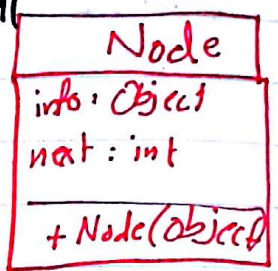 Node
info: Object
next: int
+ Node(Object)